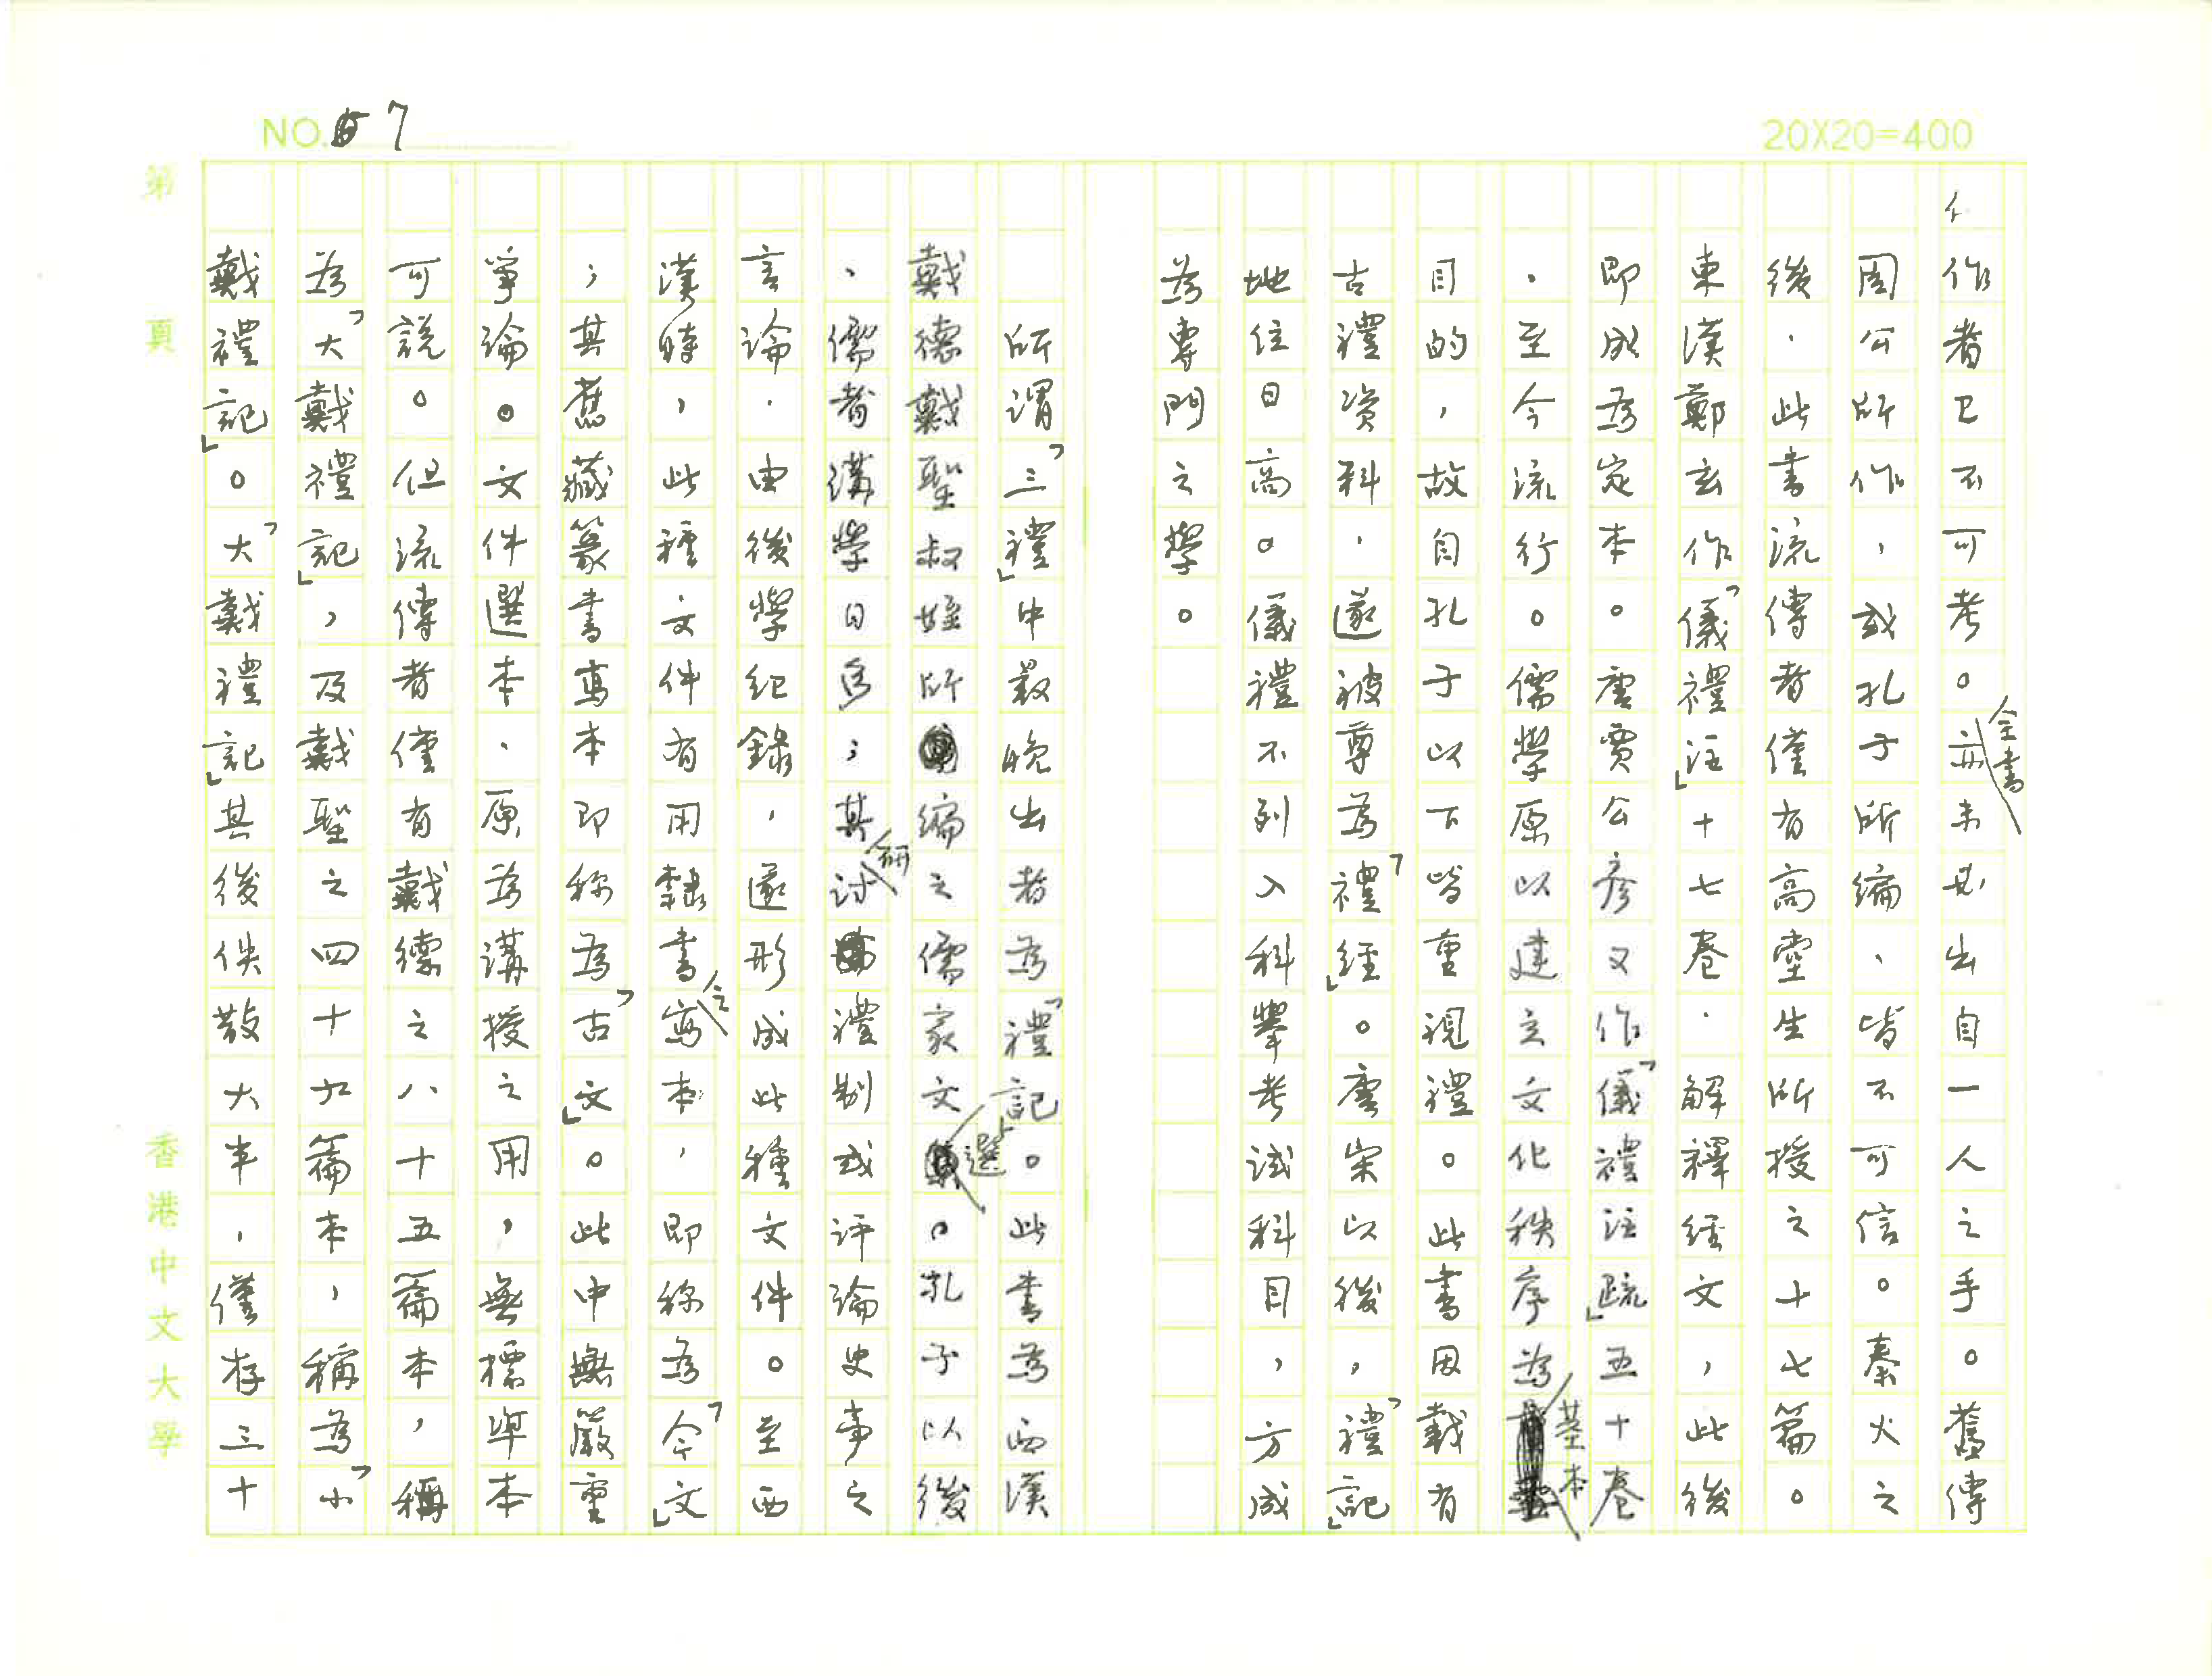 NO. 7
20X20=400
作者已不可考。全書亦未必出自一人之手。舊傳
周公所作,或孔子所編、皆不可信。秦火之
後,此書流傳者僅有高堂生所授之十七篇。
東漢鄭玄作「儀禮注」十七卷,解釋經文,此後
即成為定本。唐賈公彥又作「儀禮注疏」五十卷
,至今流行。儒學原以建立文化秩序為基本
目的,故自孔子以下皆重視禮。此書因載有
古禮資料,遂被尊為「禮經」。唐宋以後,「禮記」
地位日高。儀禮不列入科舉考試科目,方成
為專門之學。
所謂「三禮」中最晚出者為「禮記」。此書為西漢
戴德戴聖叔姪所編之儒家文選。孔子以後
,儒者講學日多;其研討禮制或評論史事之
言論,由後學紀錄,遂形成此種文件。至西
漢時,此種文件有用隸書寫之本,即称為「今文」
;其舊藏篆書寫本即称為「古文」。此中無嚴重
爭論。文件選本,原為講授之用,無標準本
可說。但流傳者僅有戴德之八十五篇本,稱
為「大戴禮記」,及戴聖之四十九篇本,稱為「小
戴禮記」。「大戴禮記」其後佚散大半,僅存三十
第 頁
香港中文大學